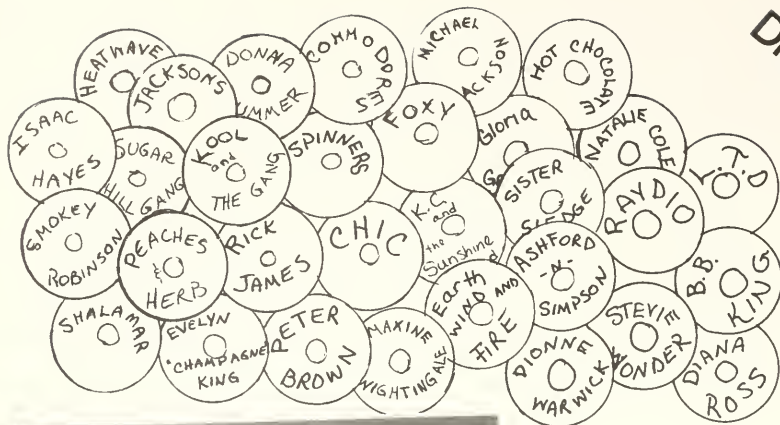 HEATWAVE
JACKSONS
DONNA
UMMER
COMMODORES
MICHAEL
ACKSON
HOT CHOCOLATE
ISAAC
HAYES
SUGAR
HILL GANG
KOOL
and
THE GANG
SPINNERS
FOXY
Gloria
G
SISTER
SLEDGE
NATALIE COLE
L.T.D
SMOKEY
ROBINSON
PEACHES
&
HERB
RICK
JAMES
CHIC
K.C. and
the
Sunshine
d
ASHFORD
-N-
SIMPSON
RAYDIO
B.B.
KING
SHALAMAR
EVELYN
"CHAMPAGNE
KING
PETER
BROWN
MAXINE
NIGHTINGALE
Earth
WIND AND
FIRE
DIONNE
WARWICK
STEVIE
WONDER
DIANA
ROSS